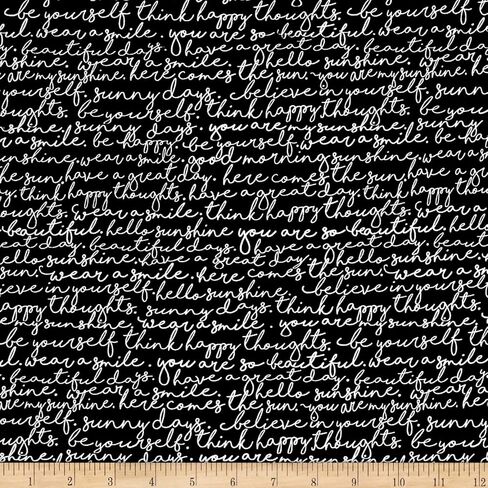 be yourself. think happy thoughts. be you
ful. wear a smile. you are so beautiful. wear a smile.
. beautiful days. have a great day. beautiful days
sunshine. wear a smile. hello sunshine. wear a
you are my sunshine. here comes the sun. you are my sunshine.
yourself. sunny days. believe in yourself. sunny
thoughts. be yourself. think happy thoughts. be you
nshine. sunny days. you are my sunshine. sunny
r a smile. be happy. be yourself. wear a smile. be ha
unshine. wear a smile. good morning sunshine. wear a sm
the sun. have a great day. here comes the sun. have a g
y. think happy thoughts. have a great day. think happy
thoughts. wear a smile. think happy thoughts. wear a
beautiful. hello sunshine you are so beautiful. hello
day. beautiful days. have a great day. beautiful
ello sunshine. have a great day. hello sunshine.
sun. wear a smile. here comes the sun. wear a smil
ieve in yourself. hello sunshine. believe in yourself.
happy thoughts. sunny days. think happy thoughts.
my sunshine. wear a smile. you are my sunshine.
be yourself. think happy thoughts. be yourself. th
l. wear a smile. you are so beautiful. wear a smile
. beautiful days. have a great day. beautiful days
shine. wear a smile. hello sunshine. wear a
are my sunshine. here comes the sun. you are my sunshine.
ourself. sunny days. believe in yourself. sunny
ughts. be yourself. think happy thoughts. be you
1 2 3 4 5 6 7 8 9 10 11 12